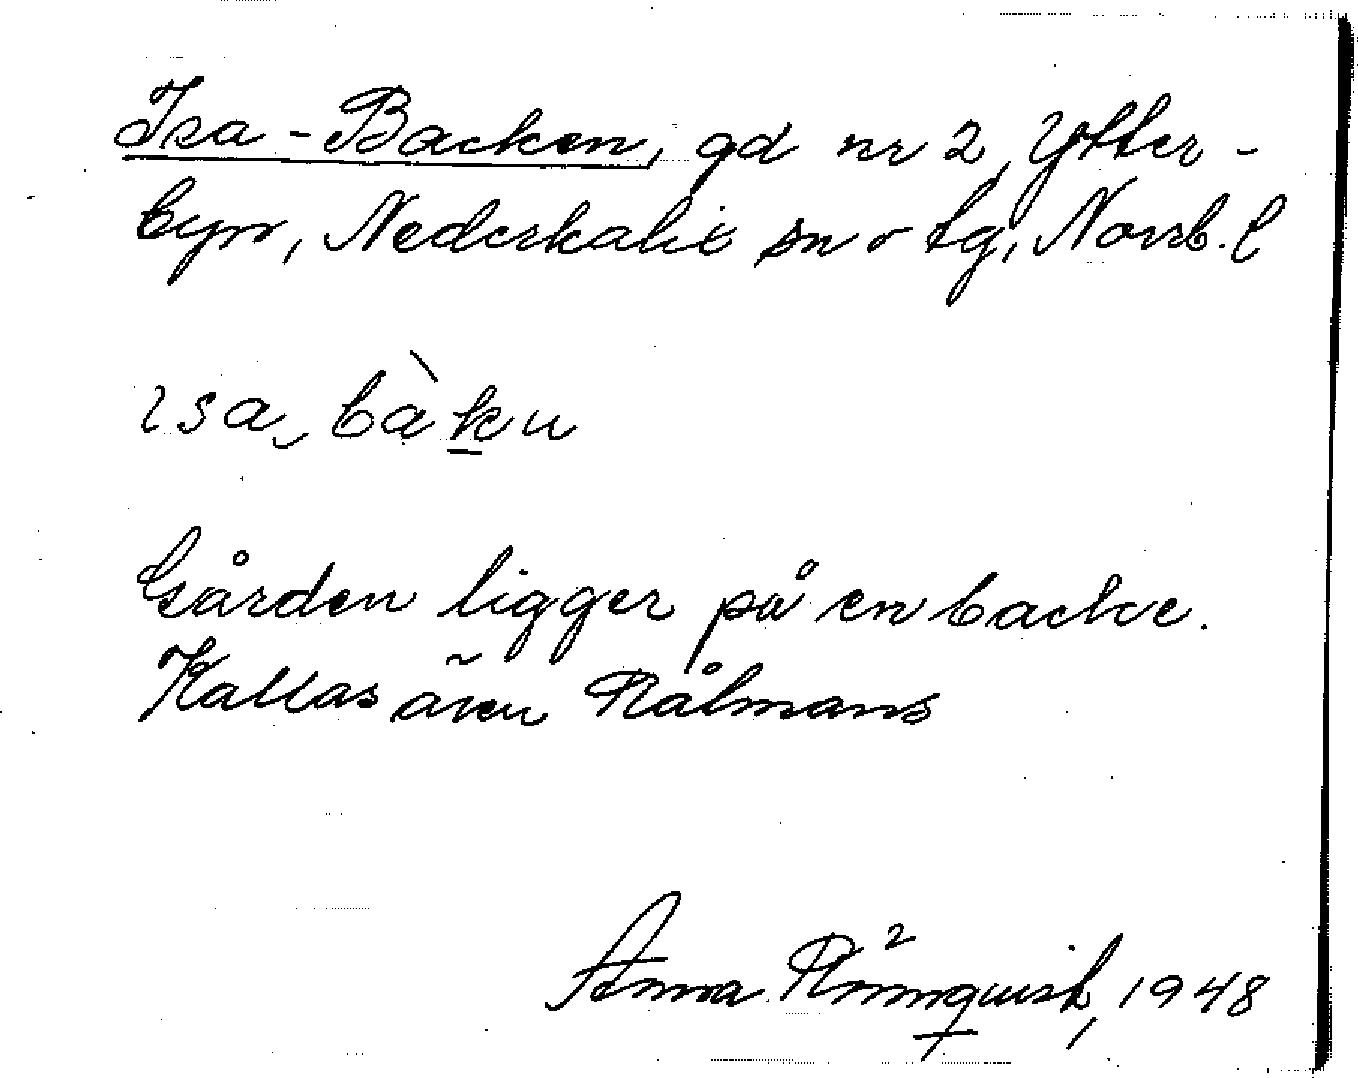 Isa-Backen, gd nr 2, Ytter-
byn, Nederkalix sn o tg, Norrb. l
ɩsa bàku
Gården ligger på en backe.
Kallas även Rålmans
Anna Rönnquist, 1948